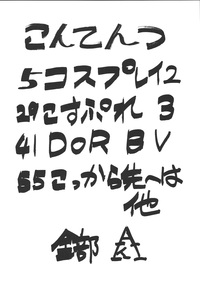 こんてんつ
5コスプレイ2
29こすぷれ 3
41 DoR B V
55こっから先へは
他
全部 A